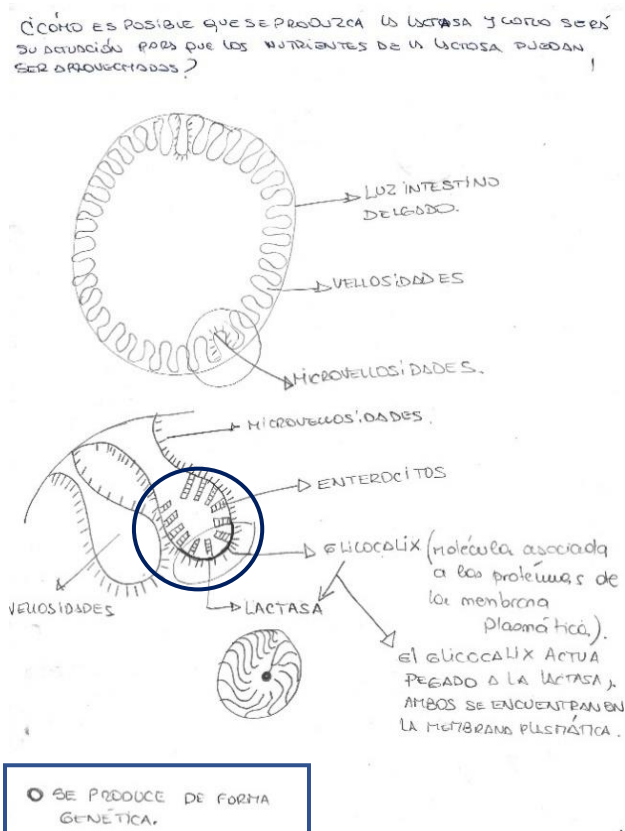 ¿CÓMO ES POSIBLE QUE SE PRODUZCA LA LACTASA Y COMO SERÁ
SU ACTUACIÓN PARA QUE LOS NUTRIENTES DE LA LACTOSA PUEDAN
SER APROVECHADOS?
LUZ INTESTINO
DELGADO.
VELLOSIDADES
MICROVELLOSIDADES.
MICROVELLOSIDADES.
ENTEROCITOS
GLICOCALIX (molécula asociada
a las proteínas de
la menbrana
Plasmática).
VELLOSIDADES
LACTASA
El GLICOCALIX ACTUA
PEGADO A LA LACTASA,
AMBOS SE ENCUENTRAN EN
LA MEMBRANA PLASMÁTICA.
SE PRODUCE DE FORMA
GENÉTICA.